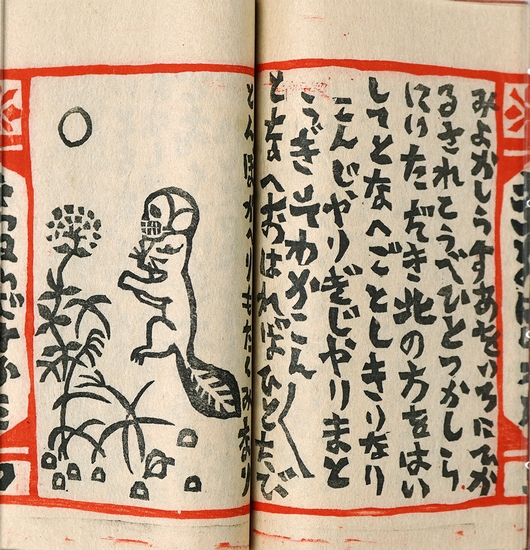 みよかしらすあをいちにひか
るされこうべひとつかしら
にいただき北の方をはい
してとなへごとしきりなり
こんじやりぎじやりまと
うぎそわかこん
ととなへおはればひとたび
とんぼがへり